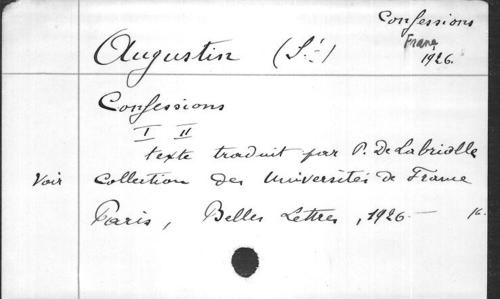 Confessions
Franç
1926.
Augustin (St)
Confessions
I II
texte traduit par P. De Labriolle
Voir Collection des Universités de France
Paris, Belles Lettres, 1926 - 16.